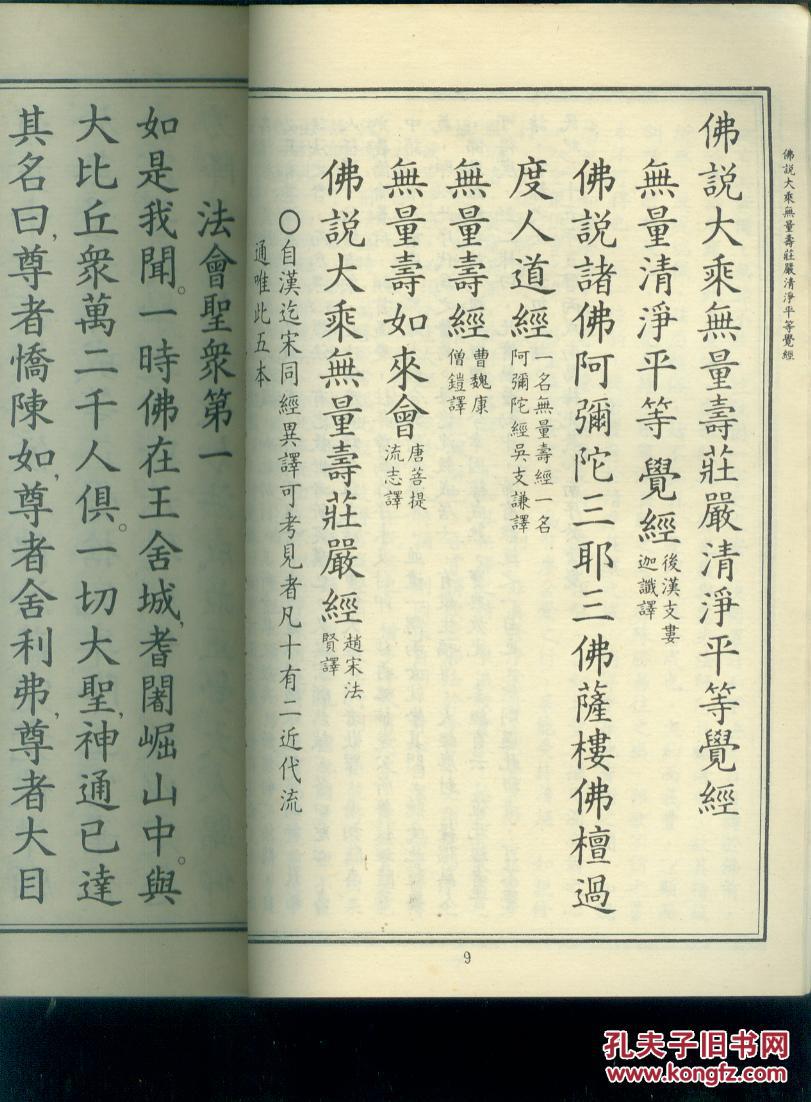 佛說大乘無量壽莊嚴清淨平等覺經
佛說大乘無量壽莊嚴清淨平等覺經
無量清淨平等覺經
後漢支婁
迦讖譯
佛說諸佛阿彌陀三耶三佛薩樓佛檀過
度人道經
一名無量壽經一名
阿彌陀經吳支謙譯
無量壽經
曹魏康
僧鎧譯
無量壽如來會
唐菩提
流志譯
佛說大乘無量壽莊嚴經
趙宋法
賢譯
○自漢迄宋同經異譯可考見者凡十有二近代流
通唯此五本
9
法會聖衆第一
如是我聞。一時佛在王舍城,耆闍崛山中。與
大比丘衆萬二千人俱。一切大聖,神通已達
其名曰,尊者憍陳如,尊者舍利弗,尊者大目
孔夫子旧书网
www.kongfz.com